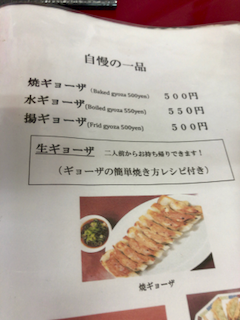 自慢の一品
焼ギョーザ (Baked gyosa 500yen) 500円
水ギョーザ (Boiled gyosa 550yen) 550円
揚ギョーザ (Frid gyoza 500yen) 500円
生ギョーザ 二人前からお持ち帰りできます！
(ギョーザの簡単焼き方レシピ付き)
焼ギョーザ